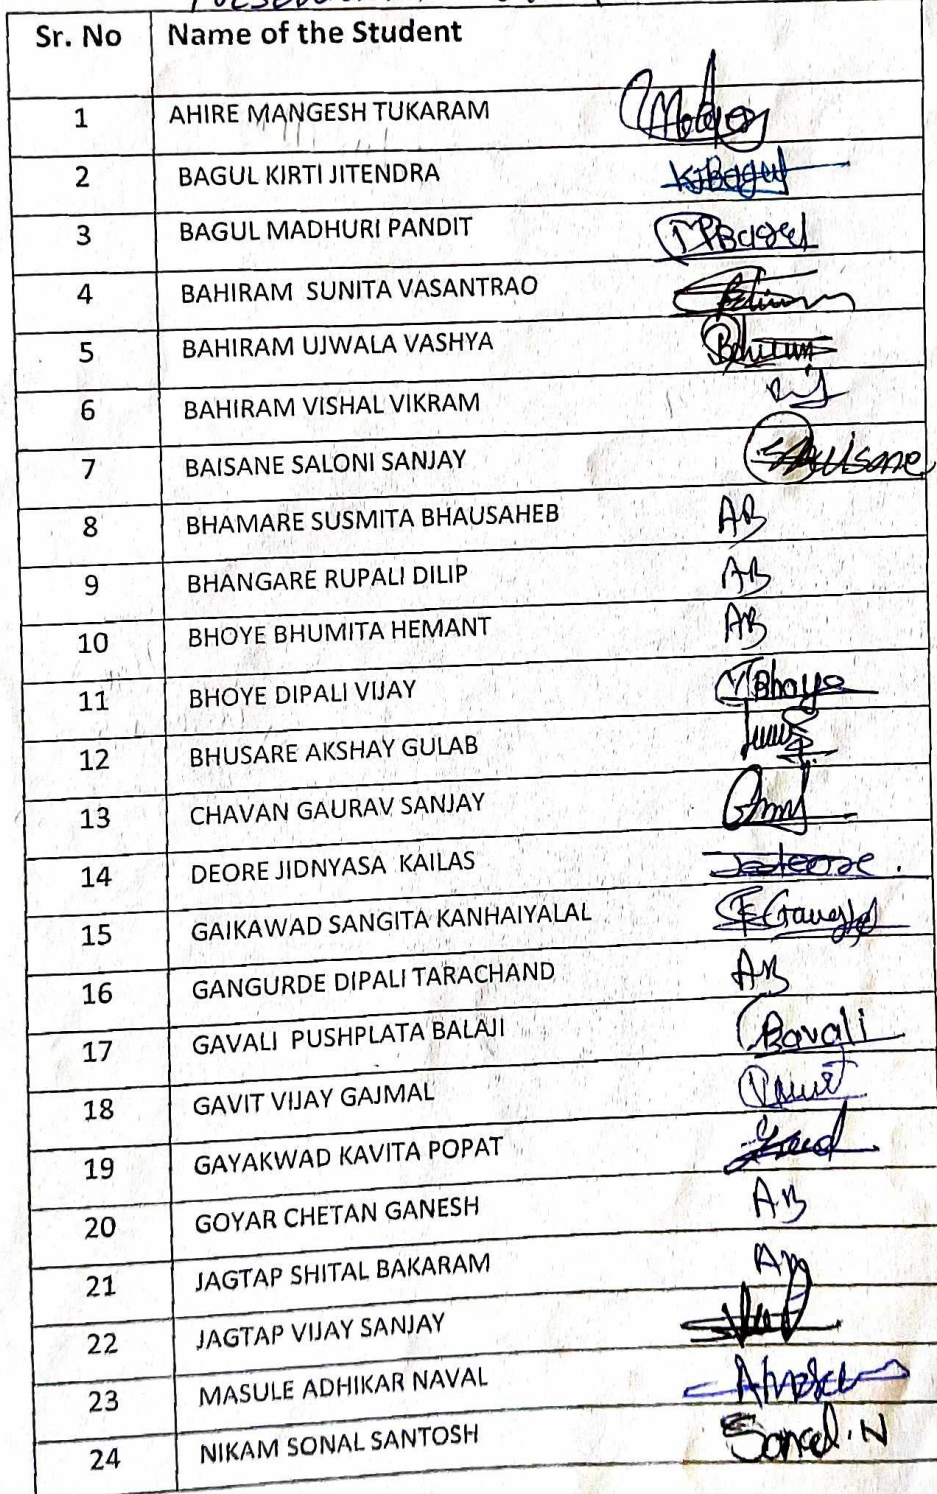 Sr. No Name of the Student
1 AHIRE MANGESH TUKARAM
2 BAGUL KIRTI JITENDRA KJBagul
3 BAGUL MADHURI PANDIT MPBagul
4 BAHIRAM SUNITA VASANTRAO
5 BAHIRAM UJWALA VASHYA Bahiram
6 BAHIRAM VISHAL VIKRAM
7 BAISANE SALONI SANJAY
8 BHAMARE SUSMITA BHAUSAHEB AB
9 BHANGARE RUPALI DILIP AB
10 BHOYE BHUMITA HEMANT AB
11 BHOYE DIPALI VIJAY Bhoye
12 BHUSARE AKSHAY GULAB
13 CHAVAN GAURAV SANJAY
14 DEORE JIDNYASA KAILAS
15 GAIKAWAD SANGITA KANHAIYALAL
16 GANGURDE DIPALI TARACHAND AB
17 GAVALI PUSHPLATA BALAJI
18 GAVIT VIJAY GAJMAL
19 GAYAKWAD KAVITA POPAT
20 GOYAR CHETAN GANESH AB
21 JAGTAP SHITAL BAKARAM AB
22 JAGTAP VIJAY SANJAY
23 MASULE ADHIKAR NAVAL
24 NIKAM SONAL SANTOSH Sonal.N